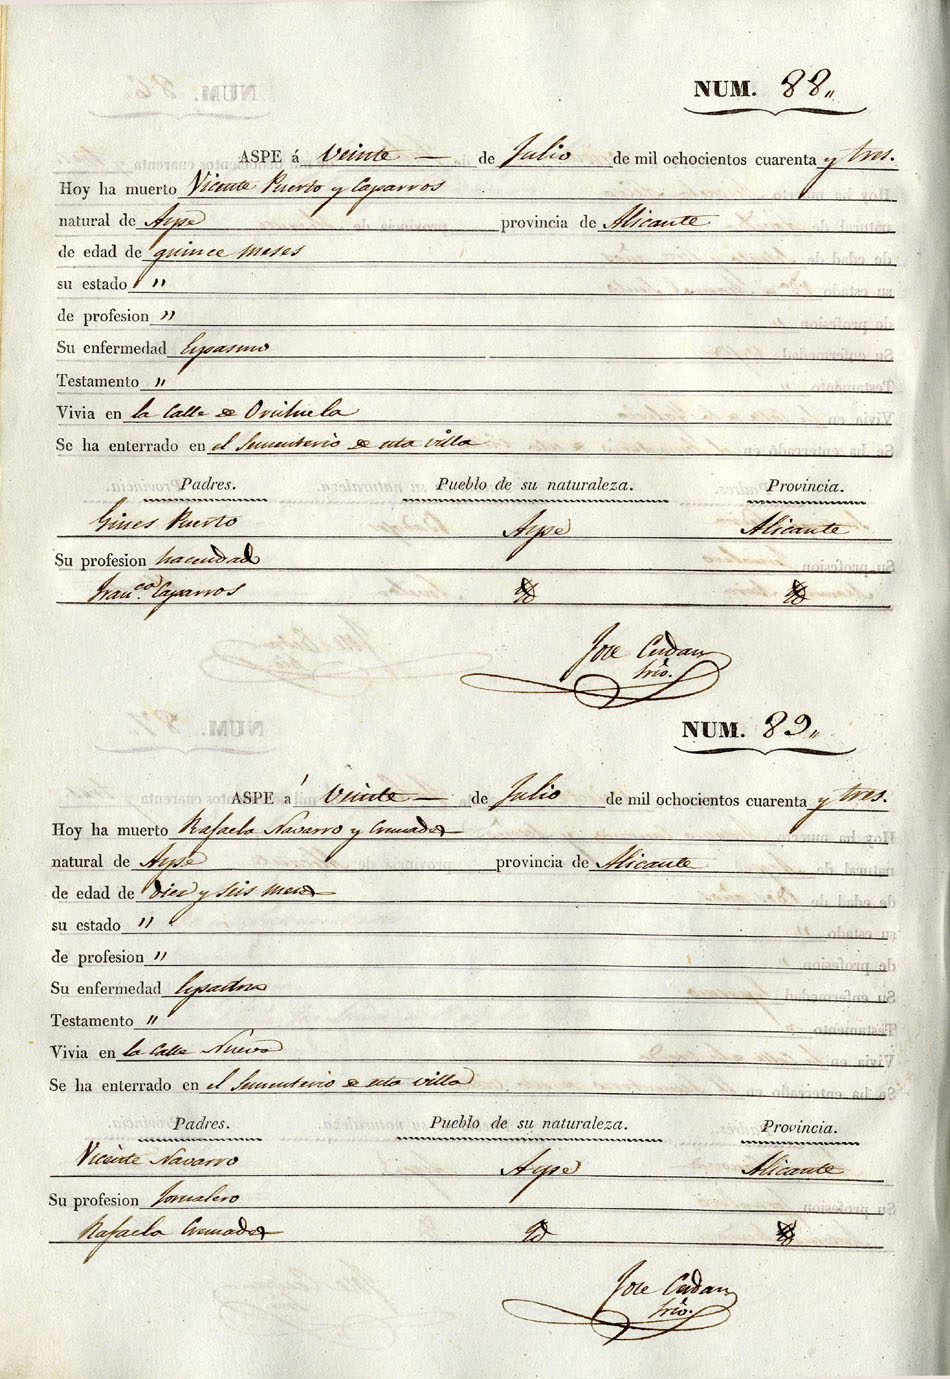 NUM. 88„
ASPE á veinte — de Julio de mil ochocientos cuarenta y tres.
Hoy ha muerto Vicente Puerto y Caparros
natural de Aspe provincia de Alicante
de edad de quince meses
su estado „
de profesion „
Su enfermedad Espasmo
Testamento „
Vivia en la Calle de Orihuela
Se ha enterrado en el Sementerio de esta villa
Padres. Pueblo de su naturaleza. Provincia.
Gines Puerto Aspe Alicante
Su profesion hacendad
Franca. Caparros Yd Yd
Jose Cerdan
Srio.
NUM. 89„
ASPE á veinte — de Julio de mil ochocientos cuarenta y tres.
Hoy ha muerto Rafaela Navarro y Cremades
natural de Aspe provincia de Alicante
de edad de diez y seis meses
su estado „
de profesion „
Su enfermedad
Testamento „
Vivia en la Calle Nueva
Se ha enterrado en el Sementerio de esta villa
Padres. Pueblo de su naturaleza. Provincia.
Vicente Navarro Aspe Alicante
Su profesion Jornalero
Rafaela Cremades Yd Yd
Jose Cerdan
Srio.